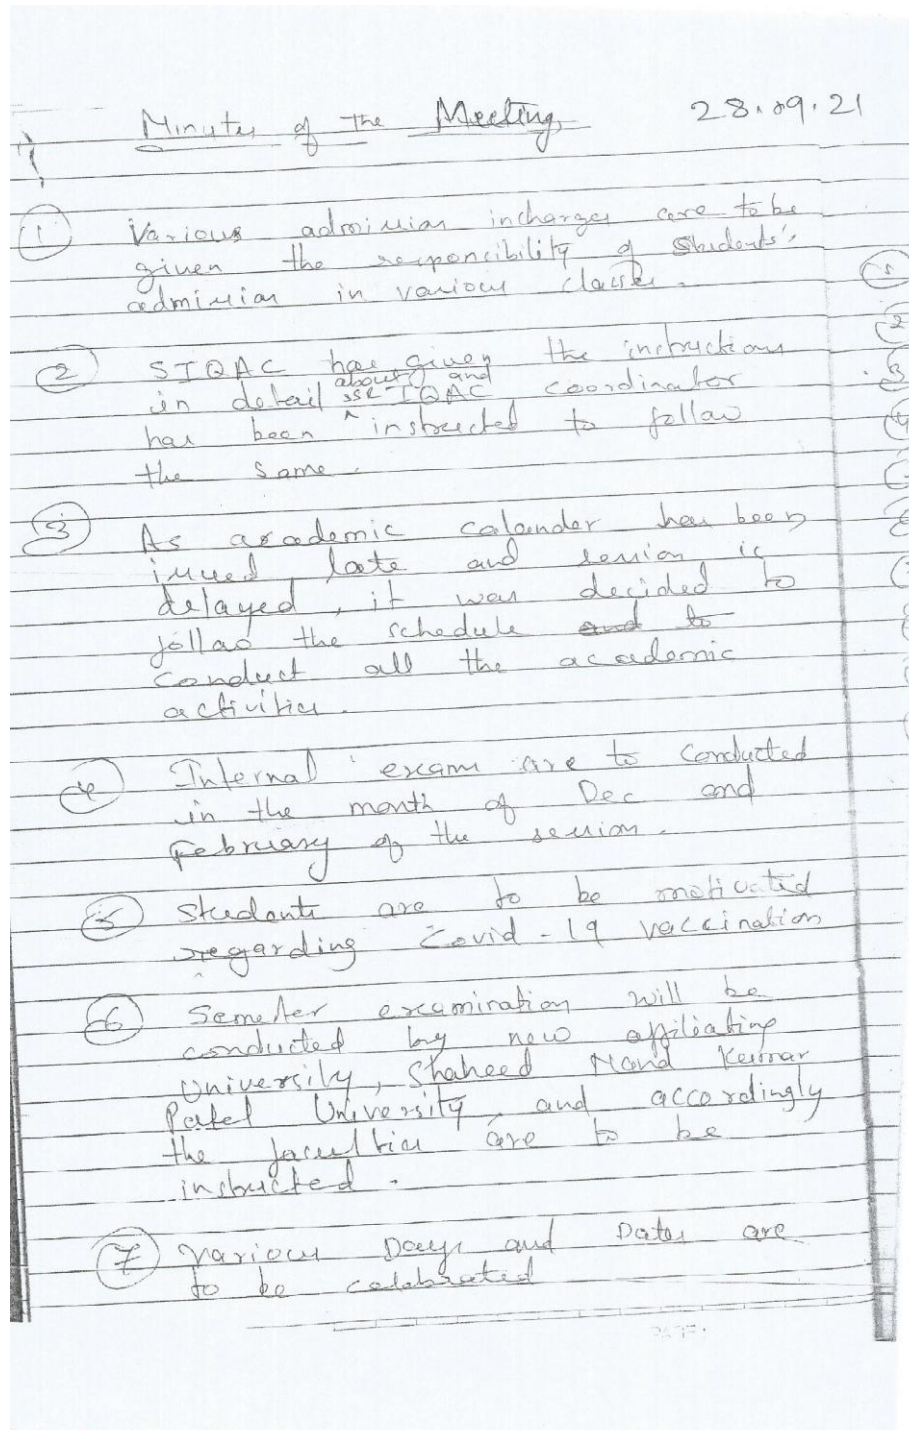 Minutes of the Meeting, 28.09.21
① Various admission incharges are to be
given the responcibility of students'
admission in various classes.
② SIQAC has given the instructions
in detail about SSR and IQAC coordinator
has been instructed to follow
the same.
③ As academic calander has been
issued late and session is
delayed, it was decided to
follow the schedule and to
conduct all the academic
activities.
④ Internal exams are to conducted
in the month of Dec and
February of the session.
⑤ Students are to be motivated
regarding Covid-19 vaccination
⑥ Semester examination will be
conducted by new affiliating
University, Shaheed Nand Kumar
Patel University, and accordingly
the faculties are to be
instructed.
⑦ Various Days and Dates are
to be celebrated
1
2
3
4
PAGE: